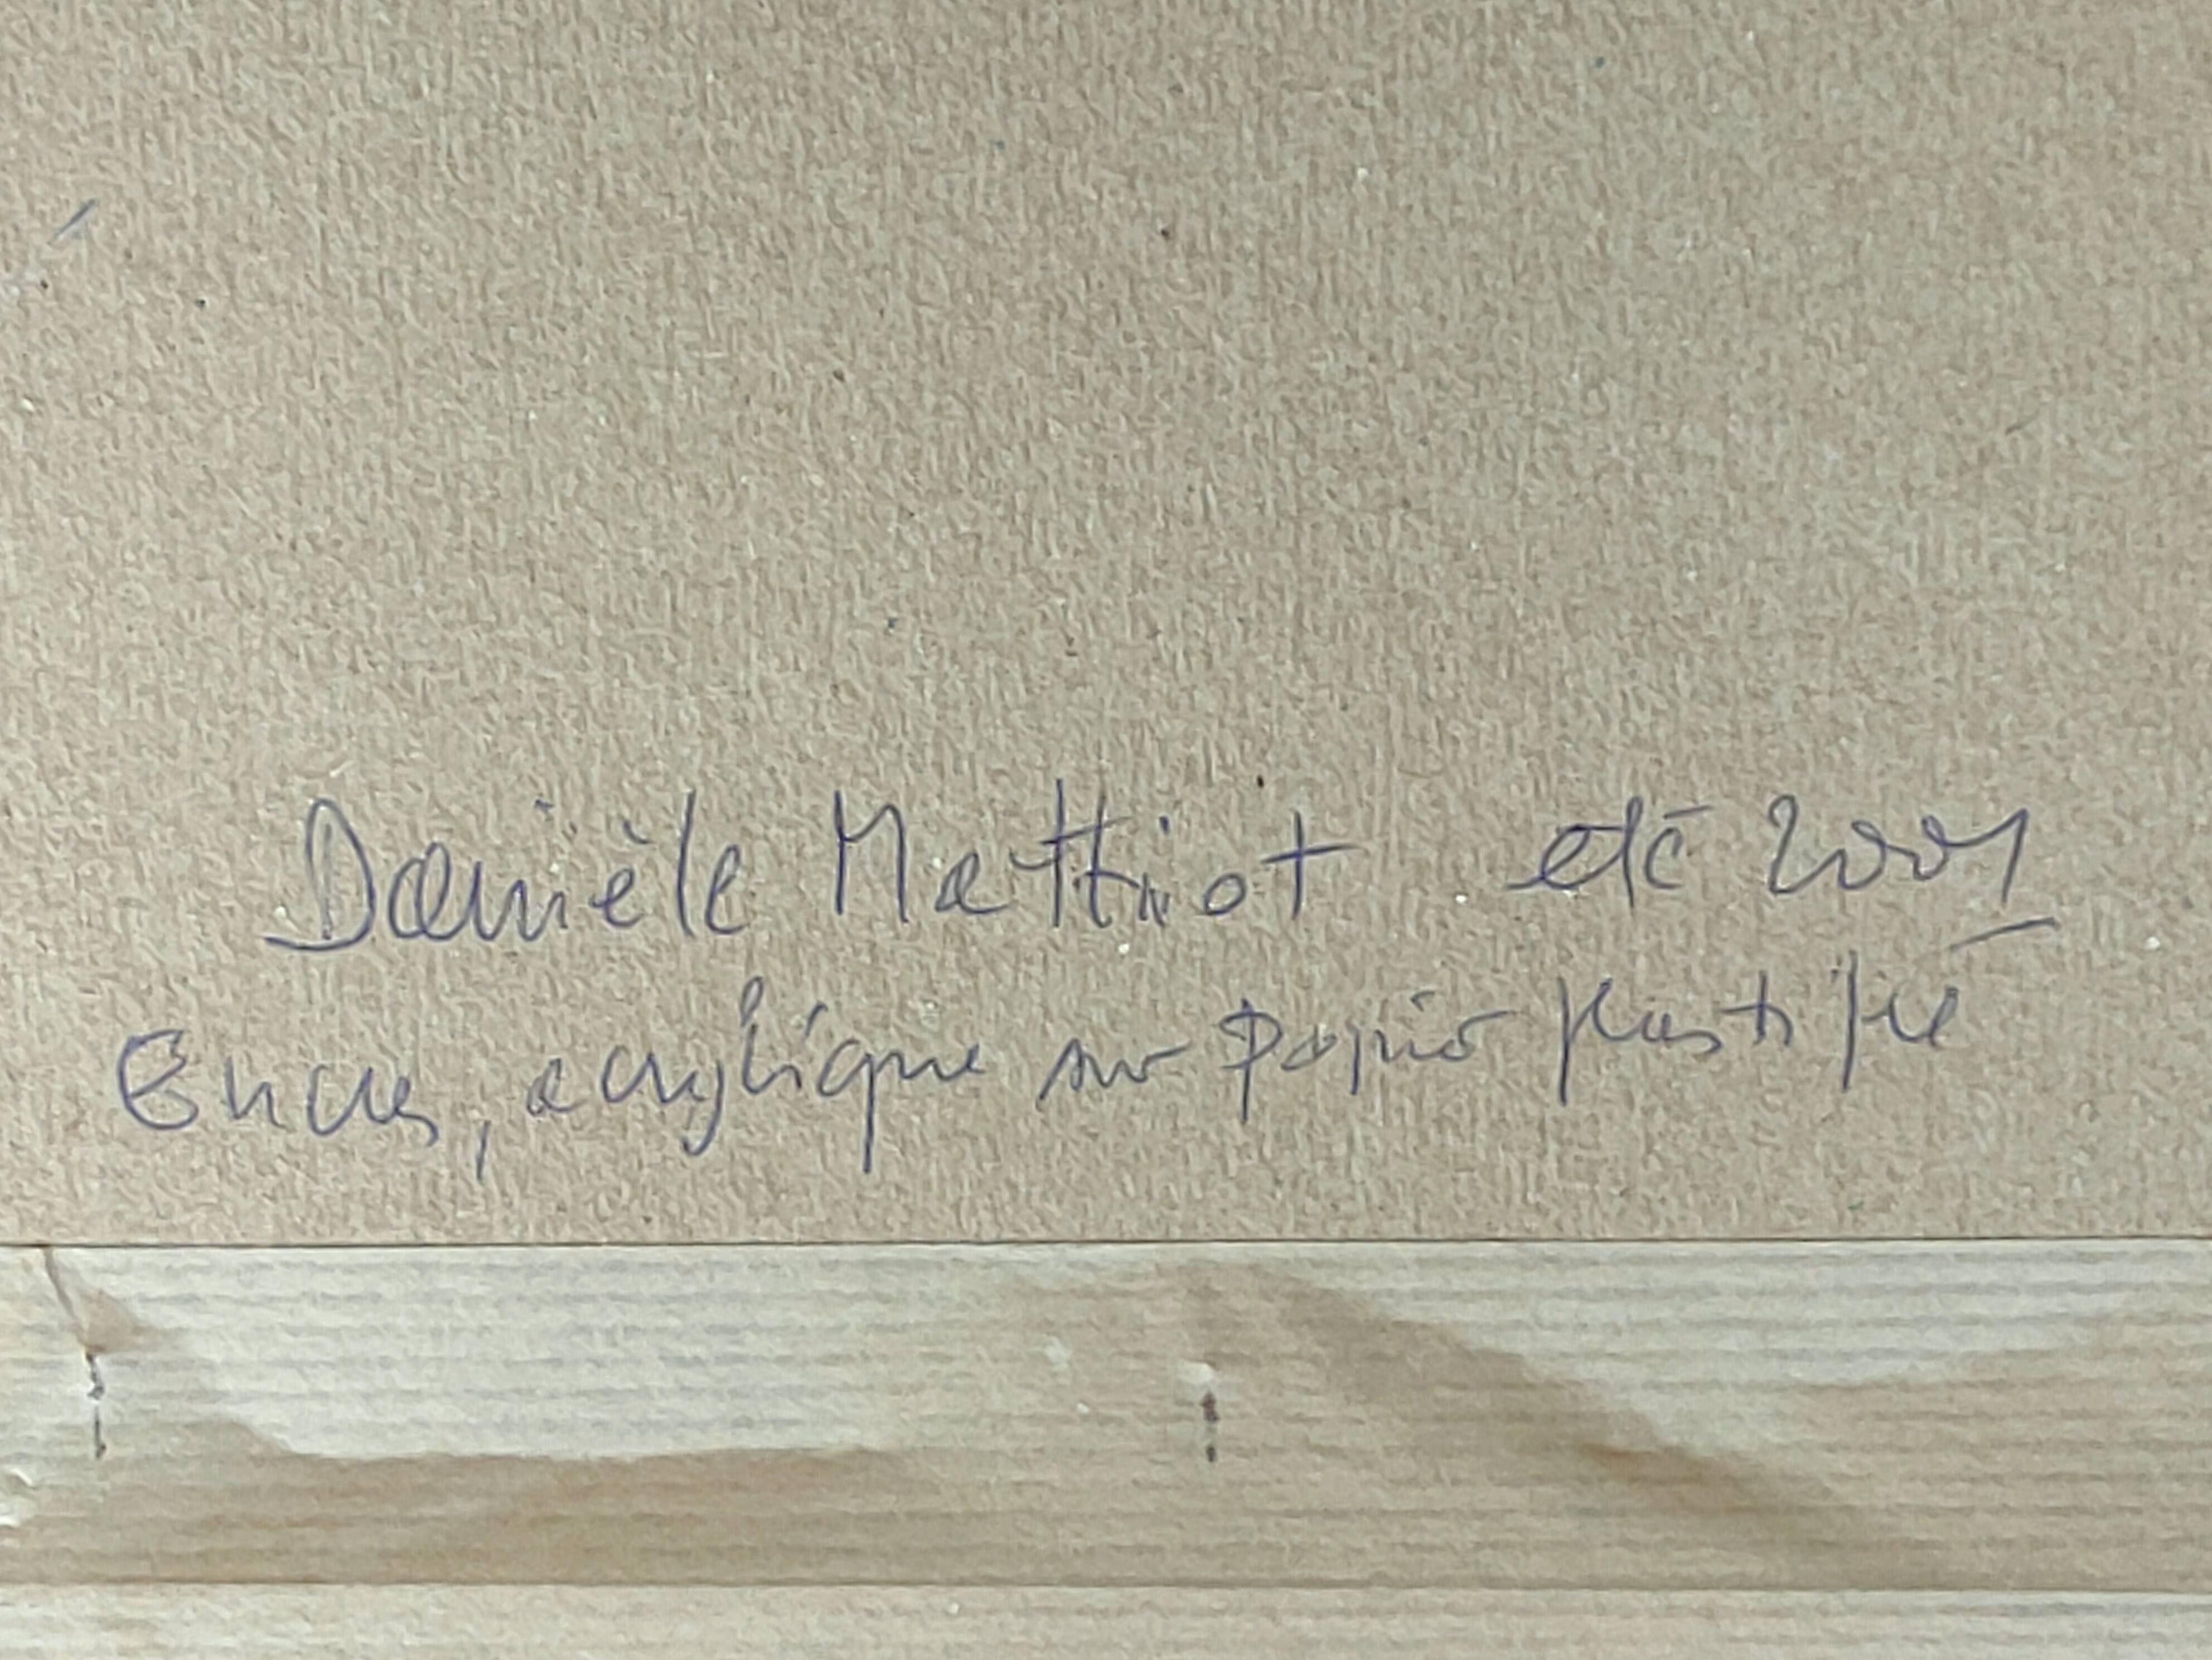 Danièle Matthiot eté 2001
Encres, acrylique sur papier plastifié